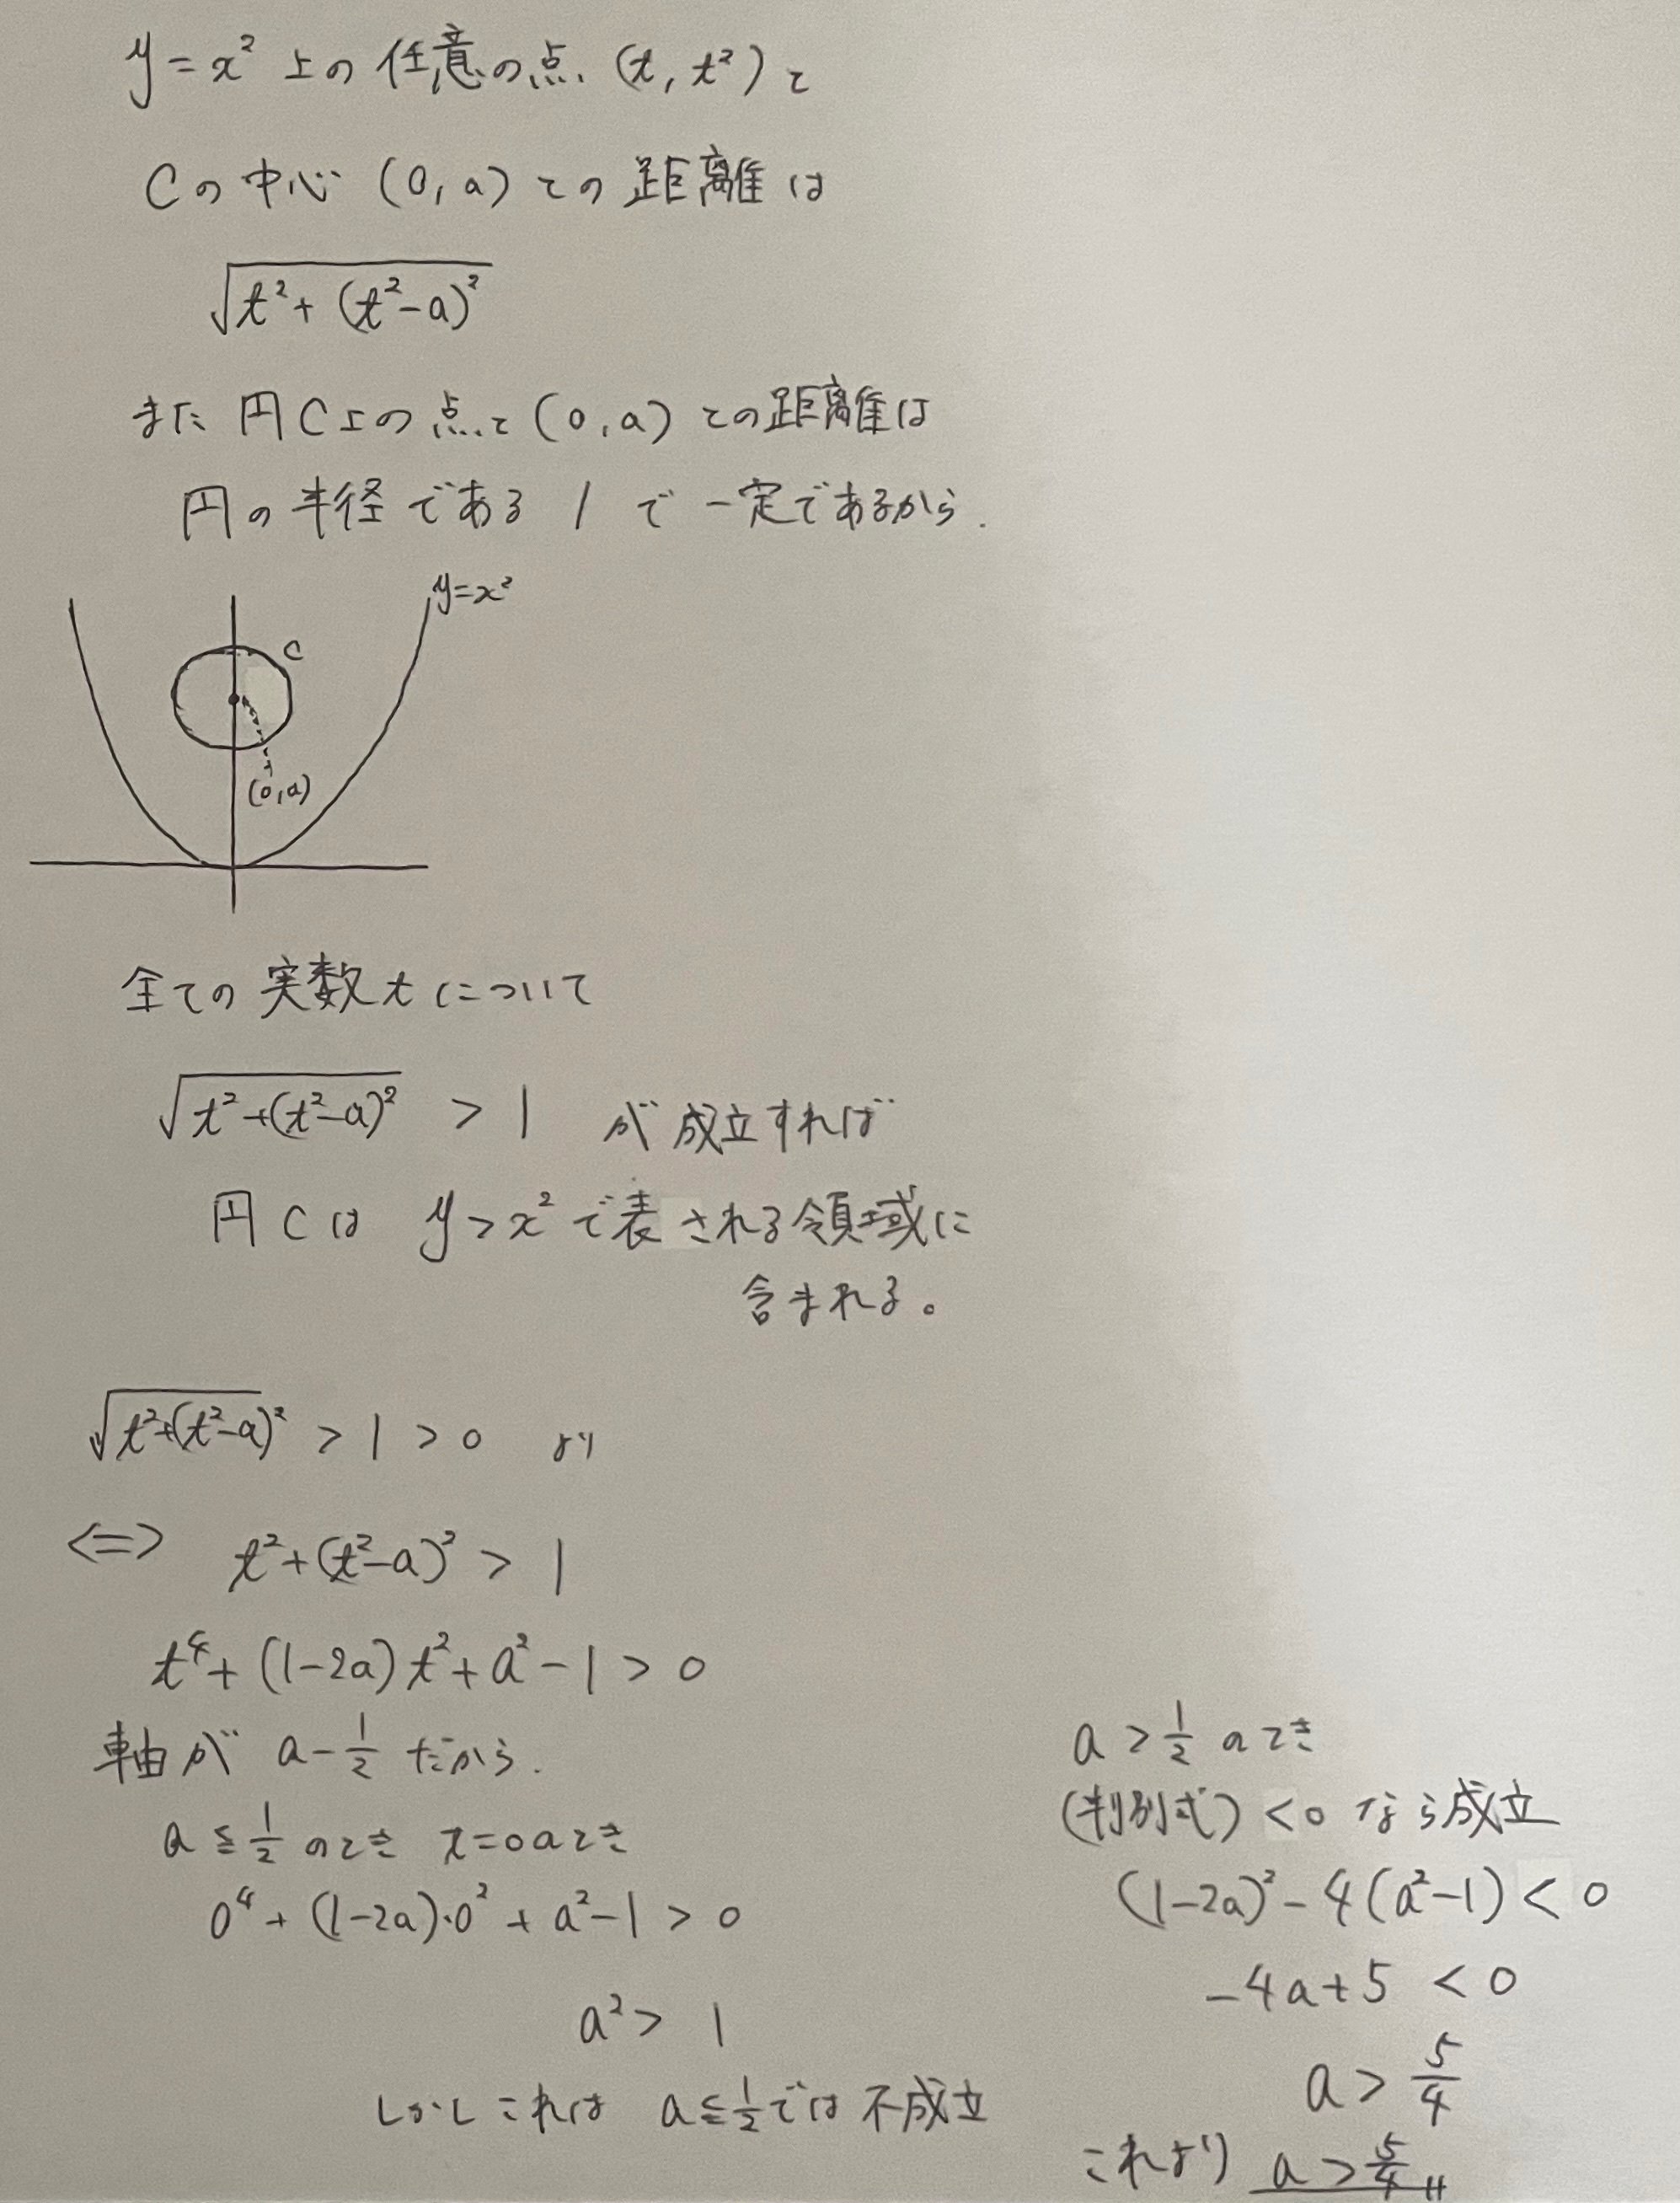 y = x² 上の 任意の点 (t, t²) と
Cの中心 (0, a) との 距離は
√(t² + (t² - a)²)
また 円C上の 点と (0, a) との距離は
円の 半径である 1 で 一定であるから.
y = x²
C
(0, a)
全ての 実数 t について
√(t² + (t² - a)²) > 1 が 成立すれば
円 C は y > x² で表される領域に
含まれる。
√(t² + (t² - a)²) > 1 > 0 より
⇔ t² + (t² - a)² > 1
t⁴ + (1 - 2a) t² + a² - 1 > 0
軸が a - 1/2 だから.
a ≦ 1/2 のとき t = 0 のとき
0⁴ + (1 - 2a)・0² + a² - 1 > 0
a² > 1
しかし これは a ≦ 1/2 では 不成立
a > 1/2 のとき
(判別式) < 0 なら成立
(1 - 2a)² - 4(a² - 1) < 0
-4a + 5 < 0
a > 5/4
これより a > 5/4 〃